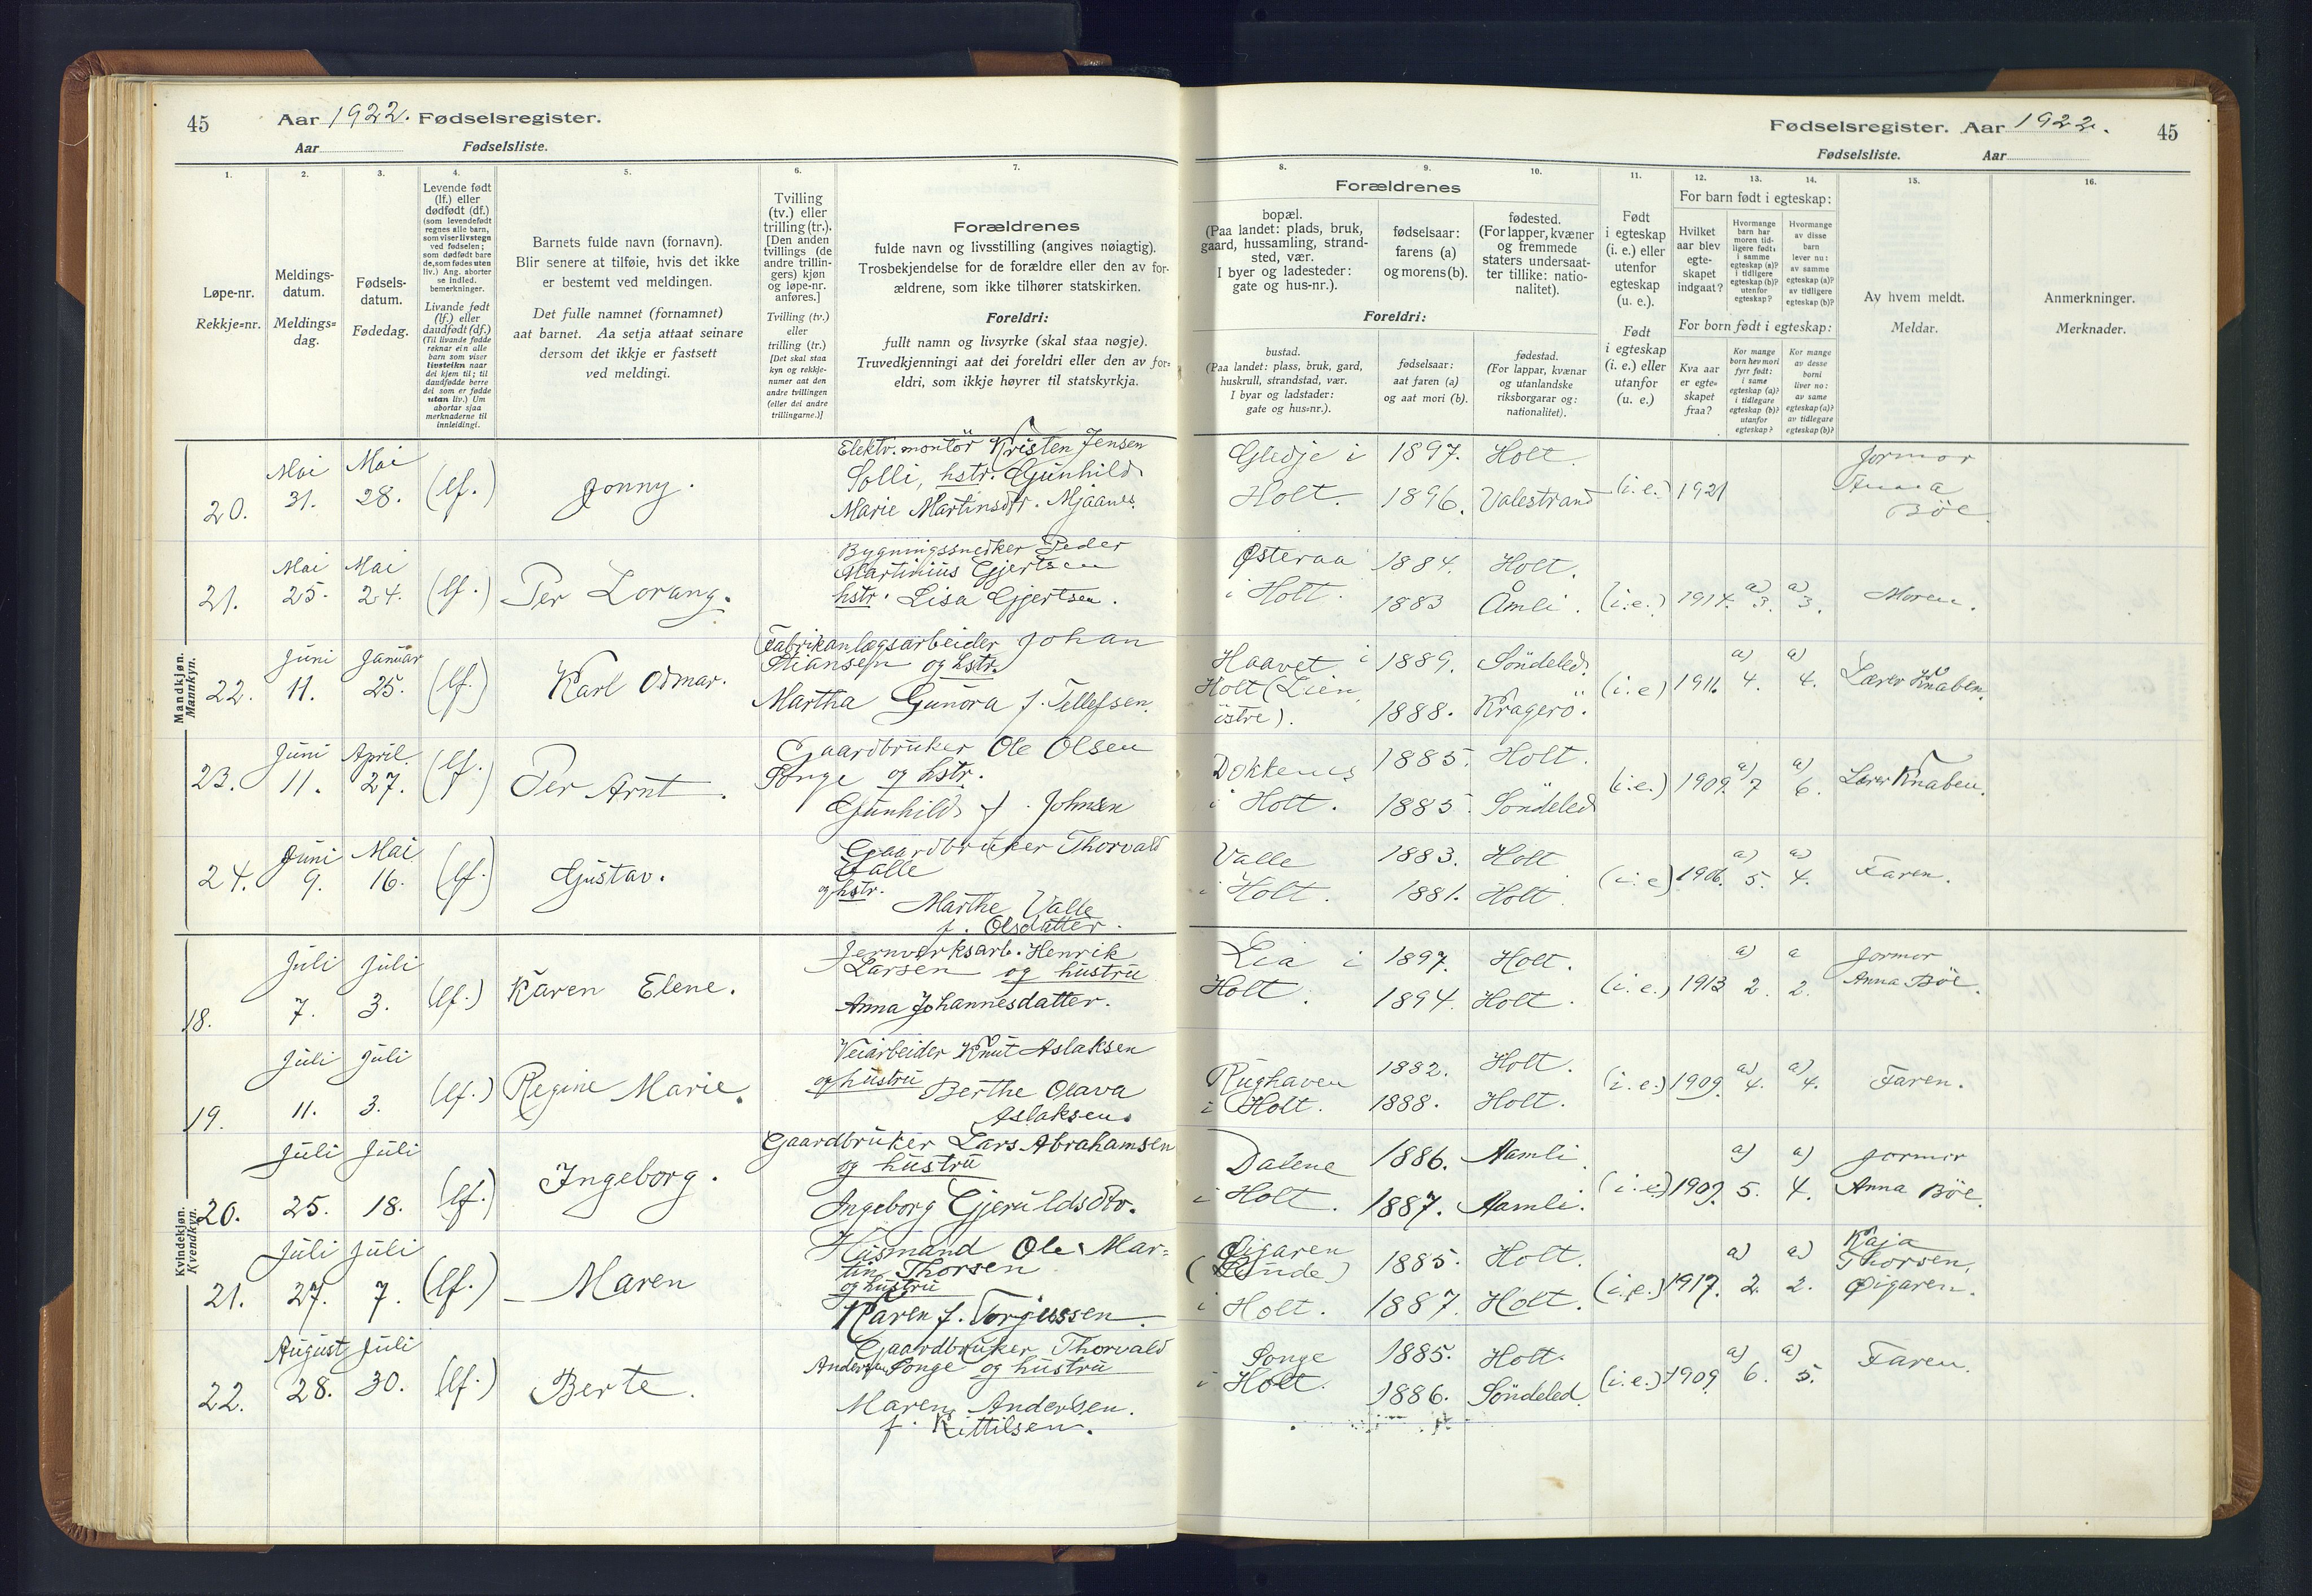 45
Aar 1922. Fødselsregister.
Aar Fødselsliste.
Fødselsregister. Aar 1922. 45
Fødselsliste. Aar
1. 2. 3. 4. 5. 6. 7.
Løpe-nr.
Rekkje=nr.
Meldings-
datum.
Meldings=
dag.
Fødsels-
datum.
Fødedag.
Levende født
(lf.) eller
dødfødt (df.)
(som levendefødt
regnes alle barn,
som viser livstegn
ved fødselen;
som dødfødt bare
de, som fødes uten
liv.) Ang. aborter
se indled.
bemerkninger.
Livande født
(lf.) eller
daudfødt (df.)
(Til livande fødde
reknar ein alle
barn som viser
livsteikn naar
dei kjem til; til
daudfødde berre
dei som er fødde
utan liv.) Um
abortar sjaa
merknaderne til
innleidingi.
Barnets fulde navn (fornavn).
Blir senere at tilføie, hvis det ikke
er bestemt ved meldingen.
Det fulle namnet (fornamnet)
aat barnet. Aa setja attaat seinare
dersom det ikkje er fastsett
ved meldingi.
Tvilling
(tv.) eller
trilling (tr.).
[Den anden
tvillings (de
andre trillin-
gers) kjøn
og løpe-nr.
anføres.]
Tvilling (tv.)
eller
trilling (tr.)
[Det skal staa
kyn og rekkje-
numer aat den
andre tvillingen
(eller dei andre
trillingarne.)]
Forældrenes
fulde navn og livsstilling (angives nøiagtig).
Trosbekjendelse for de forældre eller den av for-
ældrene, som ikke tilhører statskirken.
Foreldri:
fullt namn og livsyrke (skal staa nøgje).
Truvedkjenningi aat dei foreldri eller den av for=
eldri, som ikkje høyrer til statskyrkja.
8. 9. 10. 11. 12. 13. 14. 15. 16.
Forældrenes
bopæl.
(Paa landet: plads, bruk,
gaard, hussamling, strand-
sted, vær.
I byer og ladesteder:
gate og hus-nr.).
fødselsaar:
farens (a)
og morens (b).
fødested.
(For lapper, kvæner
og fremmede
staters undersaat-
ter tillike: natio-
nalitet).
Foreldri:
bustad.
(Paa landet: plass, bruk, gard,
huskrull, strandstad, vær.
I byar og ladstader:
gate og hus=nr.).
fødselsaar:
aat faren (a)
og aat mori (b).
fødestad.
(For lappar, kvænar
og utanlandske
riksborgarar og:
nationalitet).
Født
i egteskap
(i. e.) eller
utenfor
egteskap
(u. e.).
Født
i egteskap
(i. e.) eller
utanfor
(u. e.)
For barn født i egteskap:
Hvilket
aar blev
egte-
skapet
indgaat?
Hvormange
barn har
moren tid-
ligere født:
i samme
egteskap (a)?
i tidligere
egteskap (b)?
utenfor
egteskap?
Hvormange
av disse
barn
lever nu:
av samme
egteskap (a)?
av tidligere
egteskap (b)?
For born født i egteskap:
Kva aar
er egte=
skapet
fraa?
Kor mange
born hev mori
fyrr født:
i same
egteskap (a)?
i tidlegare
egteskap (b)?
utanfor
egteskap?
Kor mange
av desse
borni
liver no:
av same
egteskap (a)?
av tidlegare
egteskap (b)?
Av hvem meldt.
Meldar.
Anmerkninger.
Merknader.
Mandkjøn.
Mannkyn.
20. Mai 31. Mai 28. (lf.) Jonny.
Elektr. montör Kristen Jensen
Solli, hstr. Gunhild
Marie Martinsdtr. Mjaanes.
Gledje i Holt. 1897. 1896. Holt. Valestrand (i.e.) 1921
Jormor
Anna
Böe.
21. Mai 25. Mai 24. (lf.) Per Lorang.
Bygningssnedker Peder
Martinius Gjertsen
hstr. Lisa Gjertsen.
Østeraa i Holt. 1884. 1883 Holt. Åmli. (i.e.) 1914. a) 3. a) 3. Moren.
22. Juni 11. Januar 25. (lf.) Karl Odmar.
Fabrikanlægsarbeider Johan
Stiansen og hstr.
Martha Gunora f. Tellefsen.
Haavet i
Holt (Lien
östre).
1889. 1888. Söndeled. Kragerö. (i.e) 1911. a) 4. a) 4. Lærer Knaben.
23. Juni 11. April 27. (lf.) Per Arnt.
Gaardbruker Ole Olsen
Songe og hstr.
Gunhild f. Johnsen
Dokkenes i Holt. 1885. 1885 Holt. Söndeled (i.e.) 1909. a) 7 a) 6. Lærer Knaben.
24. Juni 9. Mai 16. (lf.) Gustav.
Gaardbruker Thorvald
Valle
og hstr.
Marthe Valle
f. Olsdatter.
Valle i Holt. 1883. 1881. Holt Holt (i.e) 1906. a) 5. a) 4. Faren.
Kvindekjøn.
Kvendkyn.
18. Juli 7. Juli 3. (lf.) Karen Elene.
Jernverksarb. Henrik
Larsen og hustru
Anna Johannesdatter.
Lia i Holt. 1897. 1894. Holt. Holt. (i.e.) 1913 a) 2. a 2. Jormor Anna Böe.
19. Juli 11. Juli 3. (lf.) Regine Marie.
Veiarbeider Knut Aslaksen
og hustru Berthe Olava
Aslaksen.
Rughaven i Holt. 1882. 1888. Holt. Holt. (i.e.) 1909. a) 4. a) 4. Faren.
20. Juli 25. Juli 18. (lf.) Ingeborg.
Gaardbruker Lars Abrahamsen
og hustru
Ingeborg Gjeruldsdtr.
Dalene i Holt. 1886. 1887. Aamli. Aamli. (i.e.) 1909. a) 5. a) 4. Jormor Anna Böe.
21. Juli 27. Juli 7. (lf.) Maren
Husmand Ole Mar=
tin Thorsen
og hustru
Karen f. Torjussen.
Øigaren
(Lunde)
i Holt. 1885. 1887. Holt. Holt. (i.e.) 1917. a) 2. a) 2.
Kaja
Thorsen,
Øigaren.
22. August 28. Juli 30. (lf.) Berte.
Gaardbruker Thorvald
Andersen Songe og hustru
Maren Andersen.
f. Kittilsen.
Songe i Holt. 1885. 1886. Holt. Söndeled. (i.e.) 1909 a) 6. a) 5. Faren.